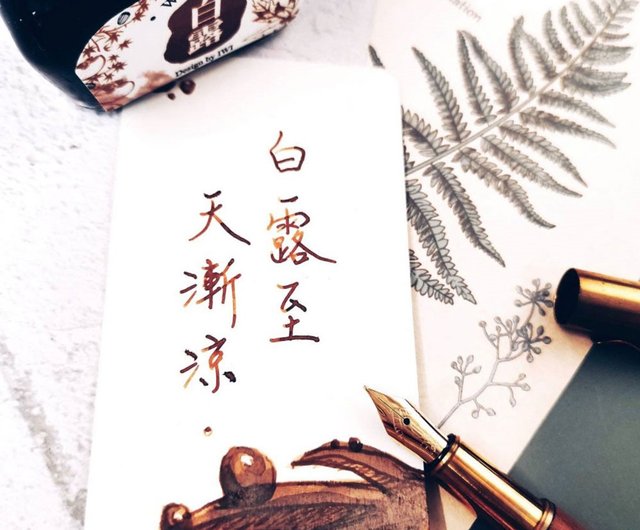 白露至
天漸涼.
白露
Design by IWI